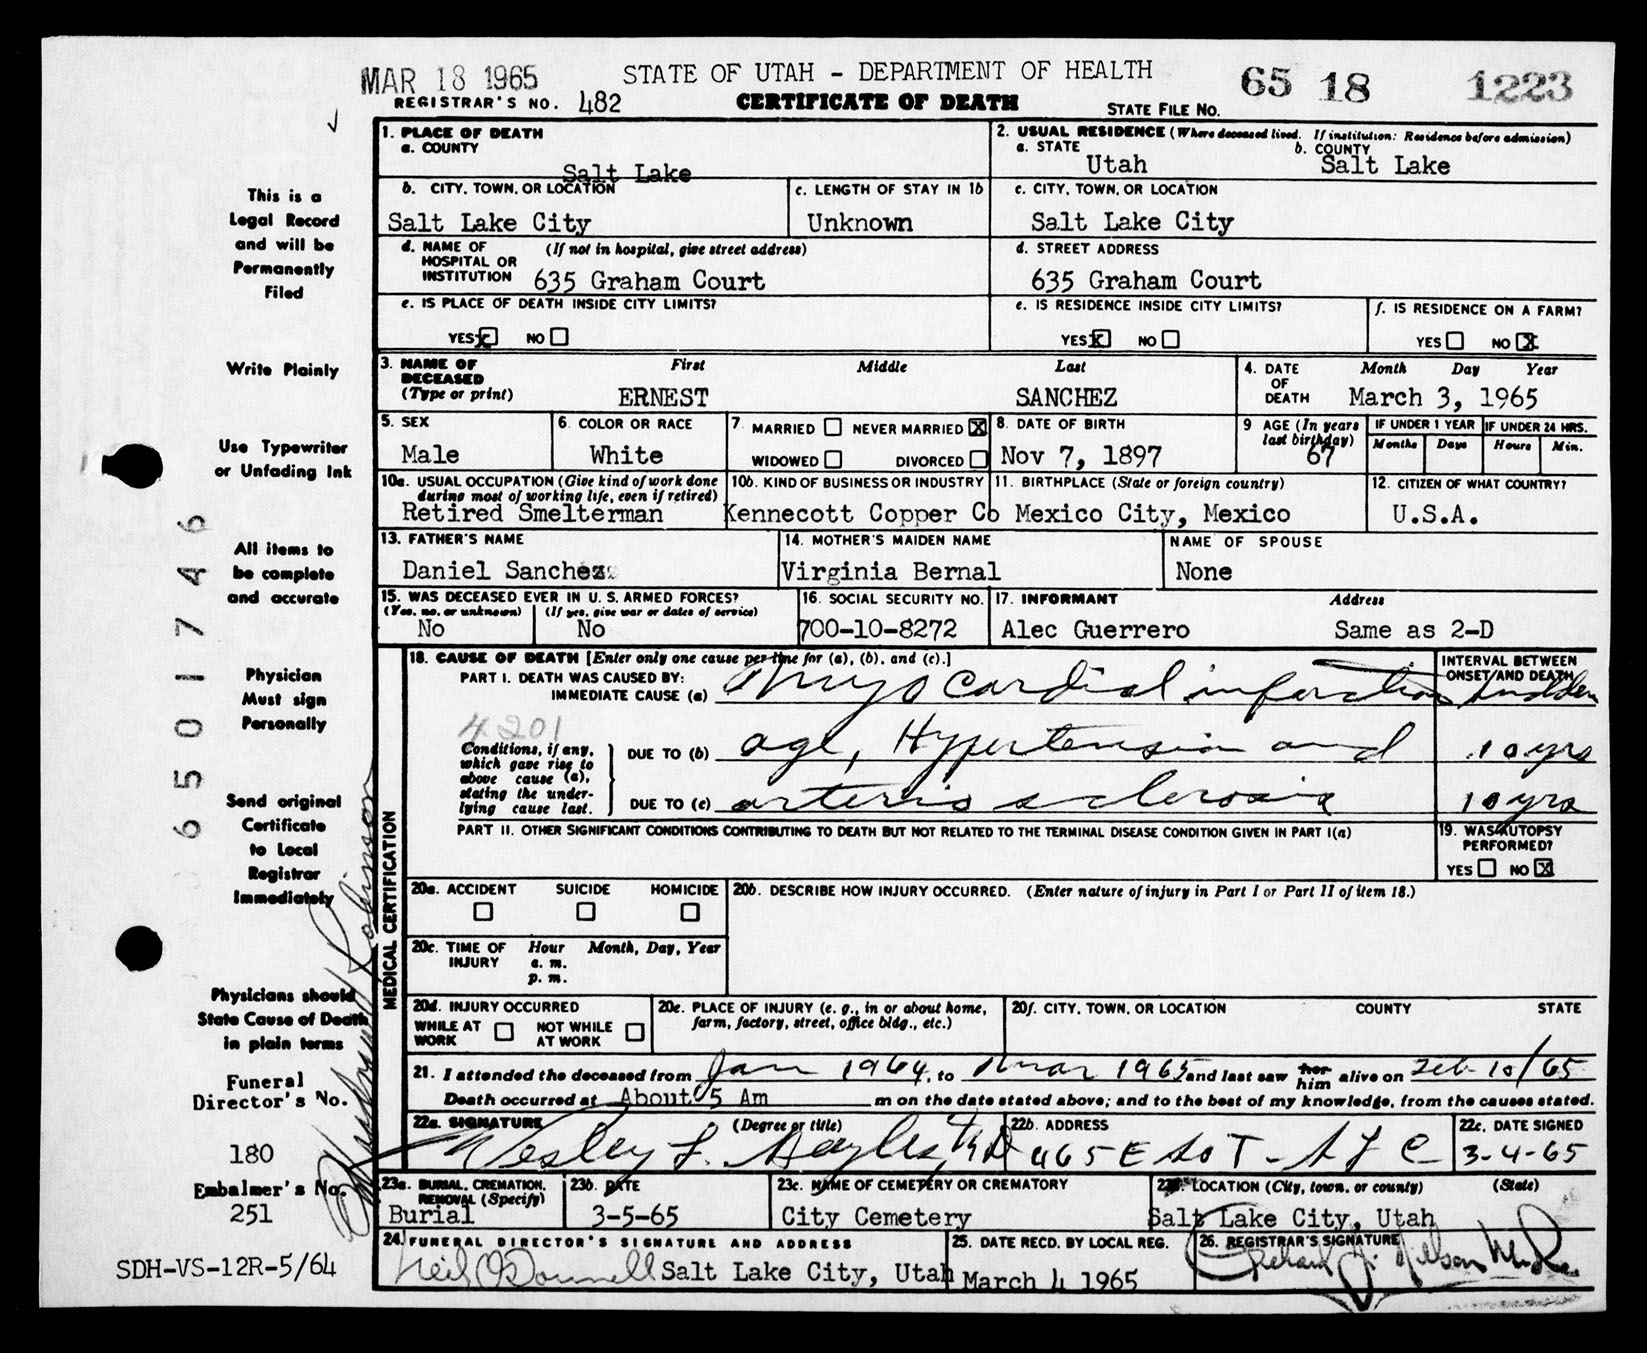 MAR 18 1965
STATE OF UTAH - DEPARTMENT OF HEALTH
65 18 1223
REGISTRAR'S NO. 482
CERTIFICATE OF DEATH
STATE FILE NO.
1. PLACE OF DEATH
a. COUNTY
Salt Lake
2. USUAL RESIDENCE (Where deceased lived. If institution: Residence before admission)
a. STATE
Utah
b. COUNTY
Salt Lake
b. CITY, TOWN, OR LOCATION
Salt Lake City
c. LENGTH OF STAY IN 1b
Unknown
c. CITY, TOWN, OR LOCATION
Salt Lake City
d. NAME OF (If not in hospital, give street address)
HOSPITAL OR
INSTITUTION 635 Graham Court
d. STREET ADDRESS
635 Graham Court
e. IS PLACE OF DEATH INSIDE CITY LIMITS?
YES X NO
e. IS RESIDENCE INSIDE CITY LIMITS?
YES X NO
f. IS RESIDENCE ON A FARM?
YES NO X
3. NAME OF
DECEASED
(Type or print)
First Middle Last
ERNEST SANCHEZ
4. DATE
OF
DEATH
Month Day Year
March 3, 1965
5. SEX
Male
6. COLOR OR RACE
White
7. MARRIED NEVER MARRIED X
WIDOWED DIVORCED
8. DATE OF BIRTH
Nov 7, 1897
9 AGE (In years
last birthday)
67
IF UNDER 1 YEAR IF UNDER 24 HRS.
Months Days Hours Min.
10a. USUAL OCCUPATION (Give kind of work done
during most of working life, even if retired)
Retired Smelterman
10b. KIND OF BUSINESS OR INDUSTRY
Kennecott Copper Co
11. BIRTHPLACE (State or foreign country)
Mexico City, Mexico
12. CITIZEN OF WHAT COUNTRY?
U.S.A.
13. FATHER'S NAME
Daniel Sanchez
14. MOTHER'S MAIDEN NAME
Virginia Bernal
NAME OF SPOUSE
None
15. WAS DECEASED EVER IN U. S. ARMED FORCES?
(Yes, no, or unknown) (If yes, give war or dates of service)
No No
16. SOCIAL SECURITY NO.
700-10-8272
17. INFORMANT Address
Alec Guerrero Same as 2-D
MEDICAL CERTIFICATION
18. CAUSE OF DEATH [Enter only one cause per line for (a), (b), and (c).]
INTERVAL BETWEEN
ONSET AND DEATH
PART I. DEATH WAS CAUSED BY:
IMMEDIATE CAUSE (a) Myocardial infarction sudden
4201
Conditions, if any,
which gave rise to
above cause (a),
stating the under-
lying cause last.
DUE TO (b) age, Hypertension and 10 yrs
DUE TO (c) arterio sclerosis 10 yrs
PART II. OTHER SIGNIFICANT CONDITIONS CONTRIBUTING TO DEATH BUT NOT RELATED TO THE TERMINAL DISEASE CONDITION GIVEN IN PART I(a)
19. WAS AUTOPSY
PERFORMED?
YES NO X
20a. ACCIDENT SUICIDE HOMICIDE
20b. DESCRIBE HOW INJURY OCCURRED. (Enter nature of injury in Part I or Part II of item 18.)
20c. TIME OF Hour Month, Day, Year
INJURY a. m.
p. m.
20d. INJURY OCCURRED
WHILE AT WORK NOT WHILE AT WORK
20e. PLACE OF INJURY (e. g., in or about home,
farm, factory, street, office bldg., etc.)
20f. CITY, TOWN, OR LOCATION COUNTY STATE
21. I attended the deceased from Jan 1964, to Mar 1965 and last saw her him alive on Feb 10/65
Death occurred at About 5 Am m on the date stated above; and to the best of my knowledge, from the causes stated.
22a. SIGNATURE (Degree or title)
Wesley F. MD
22b. ADDRESS
465 E So T - S L C
22c. DATE SIGNED
3-4-65
23a. BURIAL, CREMATION,
REMOVAL (Specify)
Burial
23b. DATE
3-5-65
23c. NAME OF CEMETERY OR CREMATORY
City Cemetery
23d. LOCATION (City, town, or county) (State)
Salt Lake City, Utah
24. FUNERAL DIRECTOR'S SIGNATURE AND ADDRESS
Neil O'Donnell Salt Lake City, Utah
25. DATE RECD. BY LOCAL REG.
March 4 1965
26. REGISTRAR'S SIGNATURE
This is a
Legal Record
and will be
Permanently
Filed
Write Plainly
Use Typewriter
or Unfading Ink
All items to
be complete
and accurate
Physician
Must sign
Personally
Send original
Certificate
to Local
Registrar
Immediately
Physicians should
State Cause of Death
in plain terms
Funeral
Director's No.
180
Embalmer's No.
251
SDH-VS-12R-5/64
6501746
Robinson